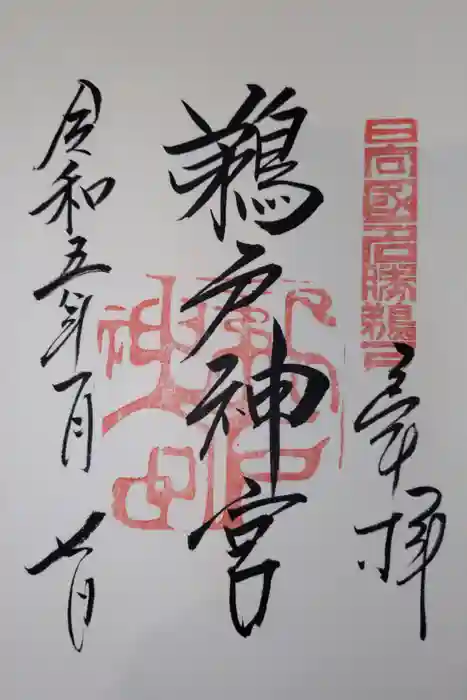 日向國名勝鵜戸
奉拝
鵜戸神宮
鵜戸
神宮
令和五年一月七日